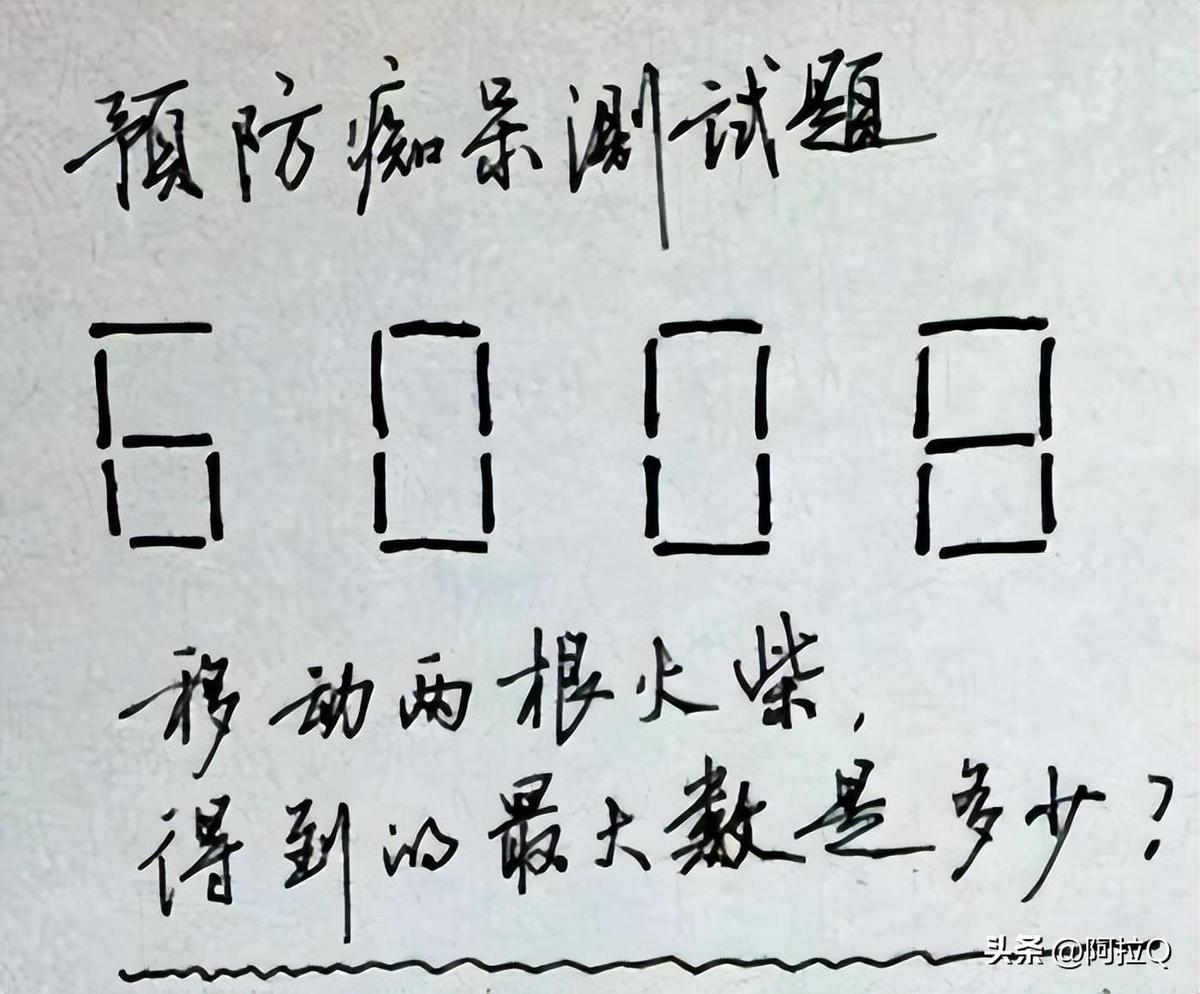 预防痴呆测试题
6008
移动两根火柴,
得到的最大数是多少?
头条 @阿拉Q